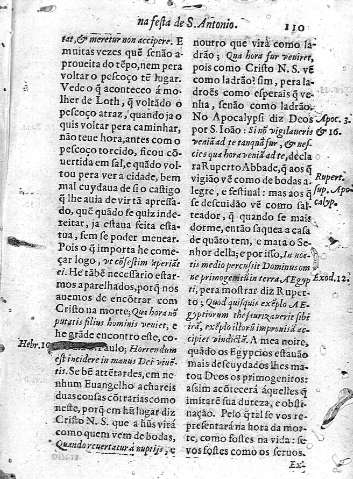 na festa de S. Antonio.
110
tat, & meretur non accipere. E
muitas vezes quẽ senão a-
proueita do tẽpo, nem pera
voltar o pescoço tẽ lugar.
Vede o q̃ aconteceo á mo-
lher de Loth, q̃ voltãdo o
pescoço atraz, quando ja o
quis voltar pera caminhar,
não teue hora, antes com o
pescoço torcido, ficou cõ-
uertida em sal, e quãdo vol-
tou pera ver a cidade, bem
mal cuydaua de si o castigo
q̃ lhe auia de vir tã apressa-
do, quẽ quãdo se quiz inde-
reitar, ja estaua feita esta-
tua, sem se poder menear.
Pois o q̃ importa he come-
çar logo, vt confestim aperiãt
ei. He tãbẽ necessario estar-
mos aparelhados, porq̃ nos
auemos de encõtrar com
Cristo na morte; Qua hora nõ
putatis filius hominis veniet, e
he grãde encontro este, co-
Paulo; Horrendum
est incidere in manus Dei viuẽ-
tis. Se bẽ attẽtardes, em ne-
nhum Euangelho achareis
duas cousas cõtrarias como
neste, porq̃ em hũ lugar diz
Cristo N. S. que a hũs virá
como quem vem de bodas,
Quando reuertatur à nuptijs, e
Hebr. 10
noutro que virá como la-
drão; Qua hora fur veniret,
pois como Cristo N. S. vẽ
como ladrão? sim, pera la-
droẽs como esperais q̃ ve-
nha, senão como ladrão.
No Apocalypsi diz Deos
por S. Ioão; Si nõ vigilaueris
veniã ad te tanquã fur, & nes-
cies qua hora veniã ad te, decla
ra Ruperto Abbade, q̃ aos q̃
vigião vẽ como de bodas a-
legre, e festiual: mas aos q̃
se descuidão vẽ como sal-
teador, q̃ quando se mais
dorme, então saquea a casa
de quãto tem, e mata o Se-
nhor della, e por isso, In noc-
tis medio percussit Dominus om
ne primogenitum in terra Ægyp
ti, pera mostrar diz Ruper-
to; Quod quisquis exẽplo Æ-
gyptiorum thesaurizauerit sibi
irã, exẽplo illorũ improuisã ac-
cipiet vindictã. A mea noite,
quado os Egypcios estauão
mais descuydados lhes ma-
tou Deos os primogenitos:
assim acõtecerá áquelles q̃
imitarẽ sua dureza, e obsti-
nação. Pelo q̃ tal se vos re-
presentará na hora da mor-
te, como fostes na vida: se
vos fostes como os seruos.
Apoc. 3.
& 16.
Rupert.
sup. Apo-
calyp.
Exod. 12.
Ex-